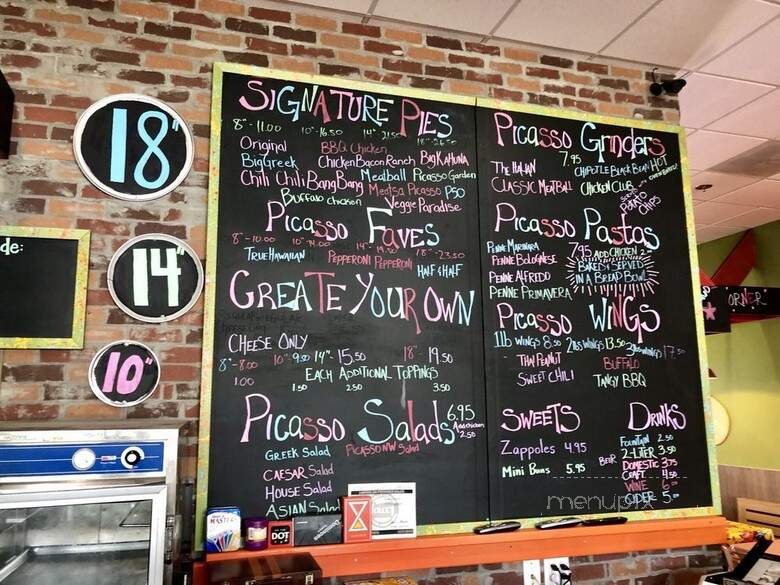 18"
14"
10"
de:
SIGNATURE PIES
8"-11.00 10"-16.50 14"-21.50 18"-26.50
Original BBQ Chicken
BigGreek Chicken Bacon Ranch Big Kahuna
Chili Chili Bang Bang Meatball Picasso Garden
Buffalo chicken Meatsa Picasso P50
Veggie Paradise
PICASSO FAVES
8"-10.00 10"-14.00 14"-19.50 18"-23.50
TRUE HAWAIIAN PEPPERONI PEPPERONI HALF & HALF
CREATE YOUR OWN
CHEESE ONLY
8"-8.00 10" 9.50 14" 15.50 18" 19.50
EACH ADDITIONAL TOPPINGS
1.00 1.50 2.50 3.50
Picasso Salads 6.95
2.50
GREEK Salad PICASSO NW Salad
CAESAR Salad
HOUSE Salad
ASIAN Salad
Picasso Grinders
7.95
THE ITALIAN CHIPOTLE BLACK BEAN HOT
CLASSIC MEATBALL CHICKEN CLUB
POTATO CHIPS
Picasso Pastas
PENNE MARINARA 7.95 ADD CHICKEN 2
PENNE BOLOGNESE BAKED & SERVED
PENNE ALFREDO IN A BREAD BOWL
PENNE PRIMAVERA
Picasso WINGS
1lb WINGS 8.50 2lbs WINGS 13.50 3lbs WINGS 17.50
THAI PEANUT BUFFALO
SWEET CHILI TANGY BBQ
SWEETS DRINKS
Zappoles 4.95 Fountain 2.50
2-LITER 3.50
Mini Buns 5.95 BEER DOMESTIC 3.75
CRAFT
WINE 6
CIDER 5
ORNER
DOT
menupix